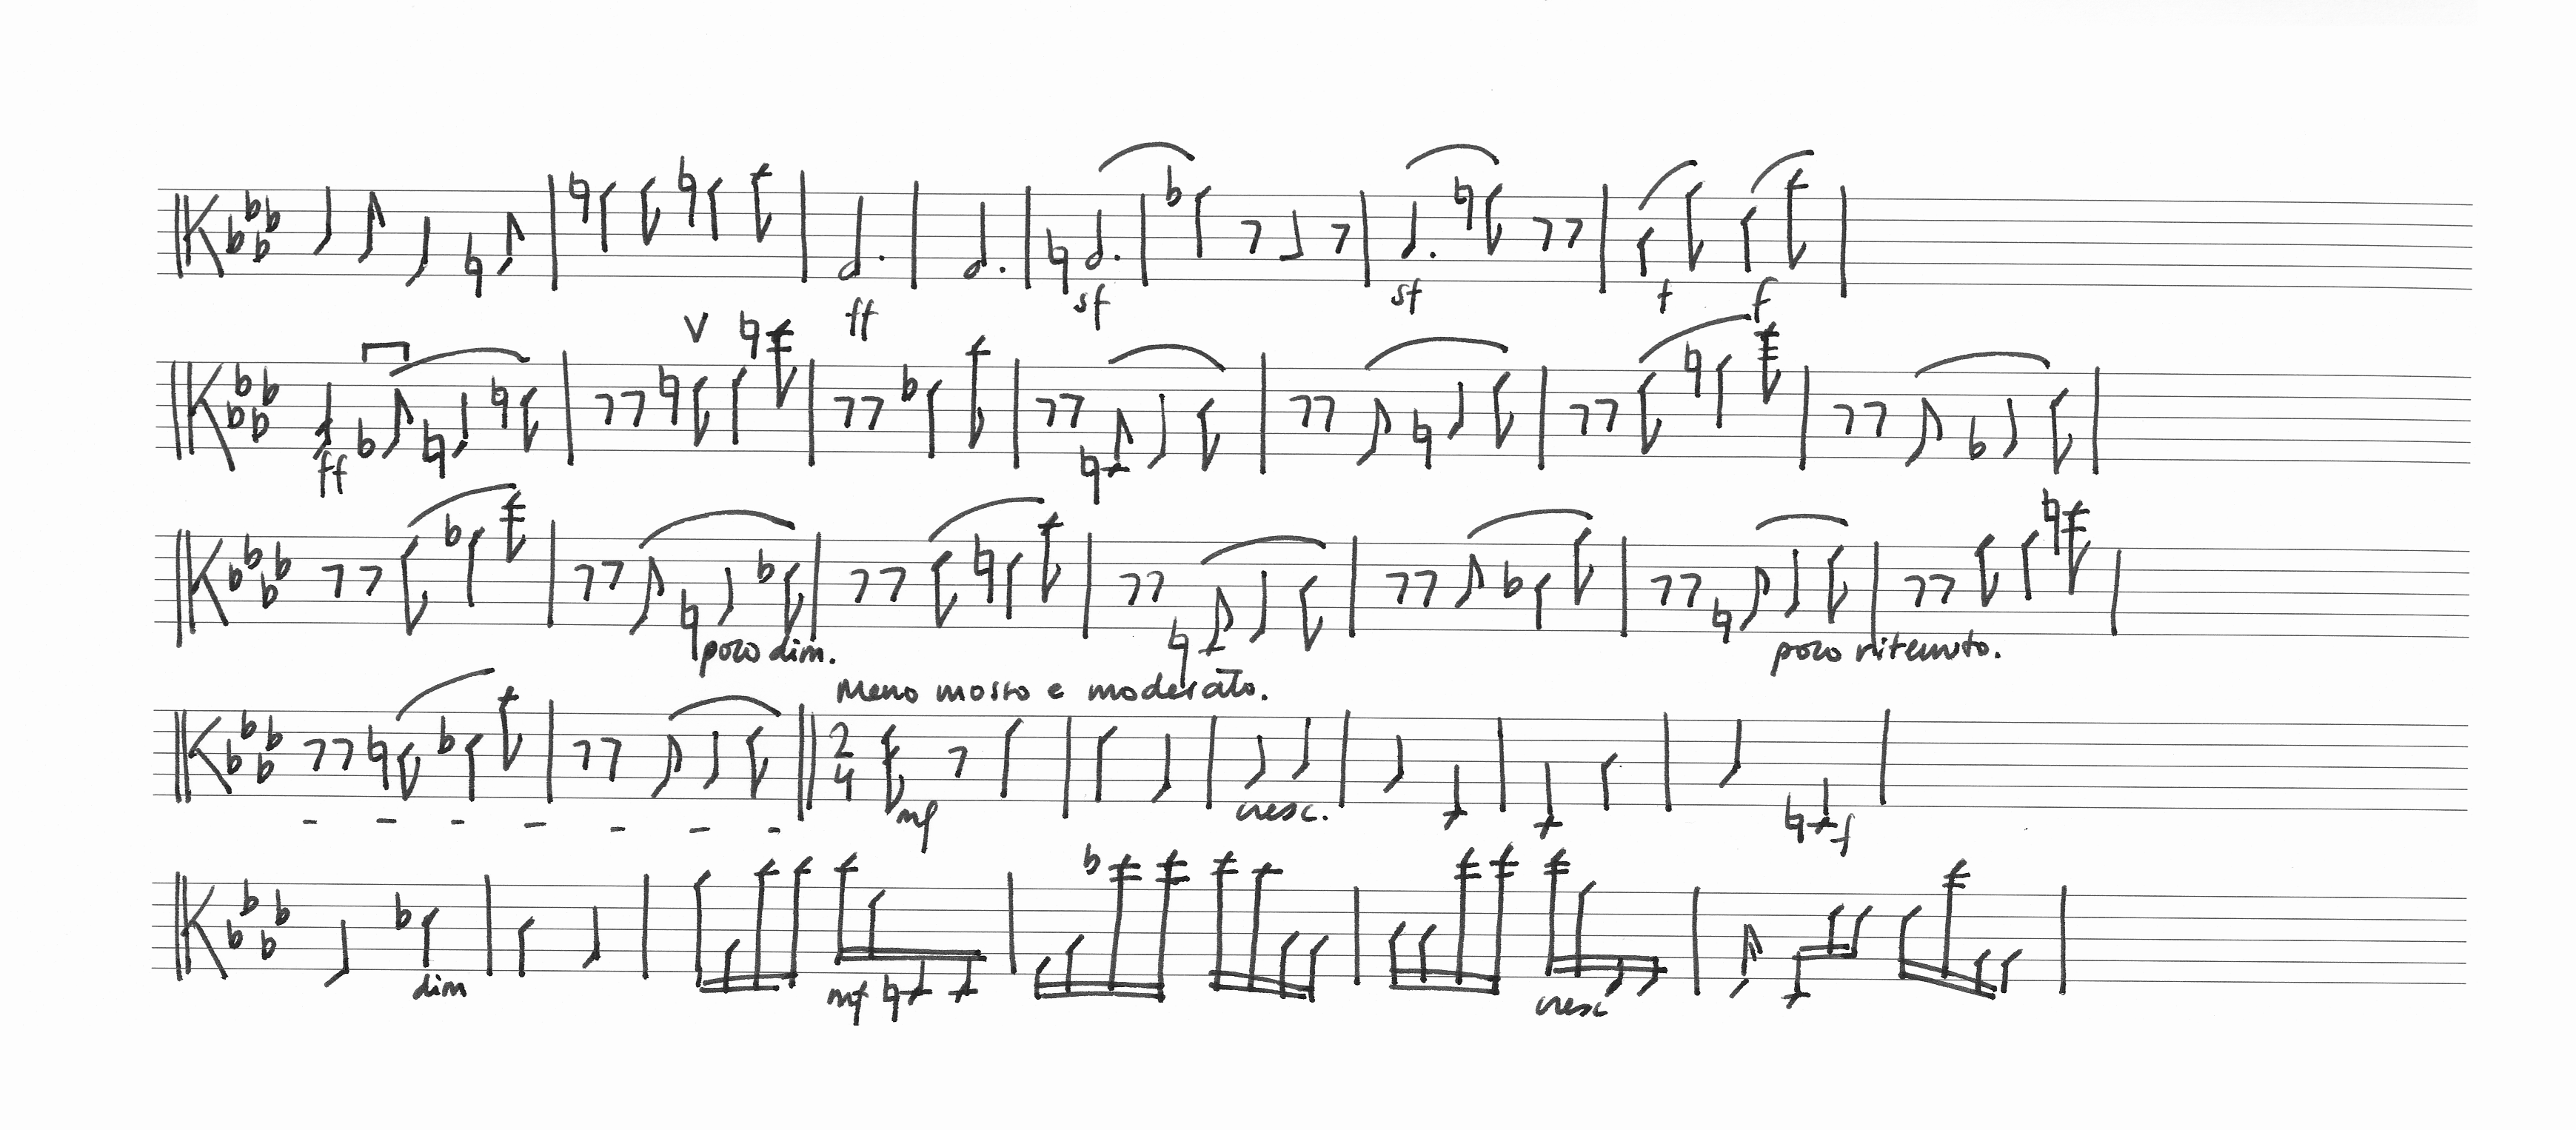 ff sf sf f f
V
ff
poco dim. poco ritenuto.
Meno mosso e moderato.
2 4
mf cresc. f
dim mf cresc